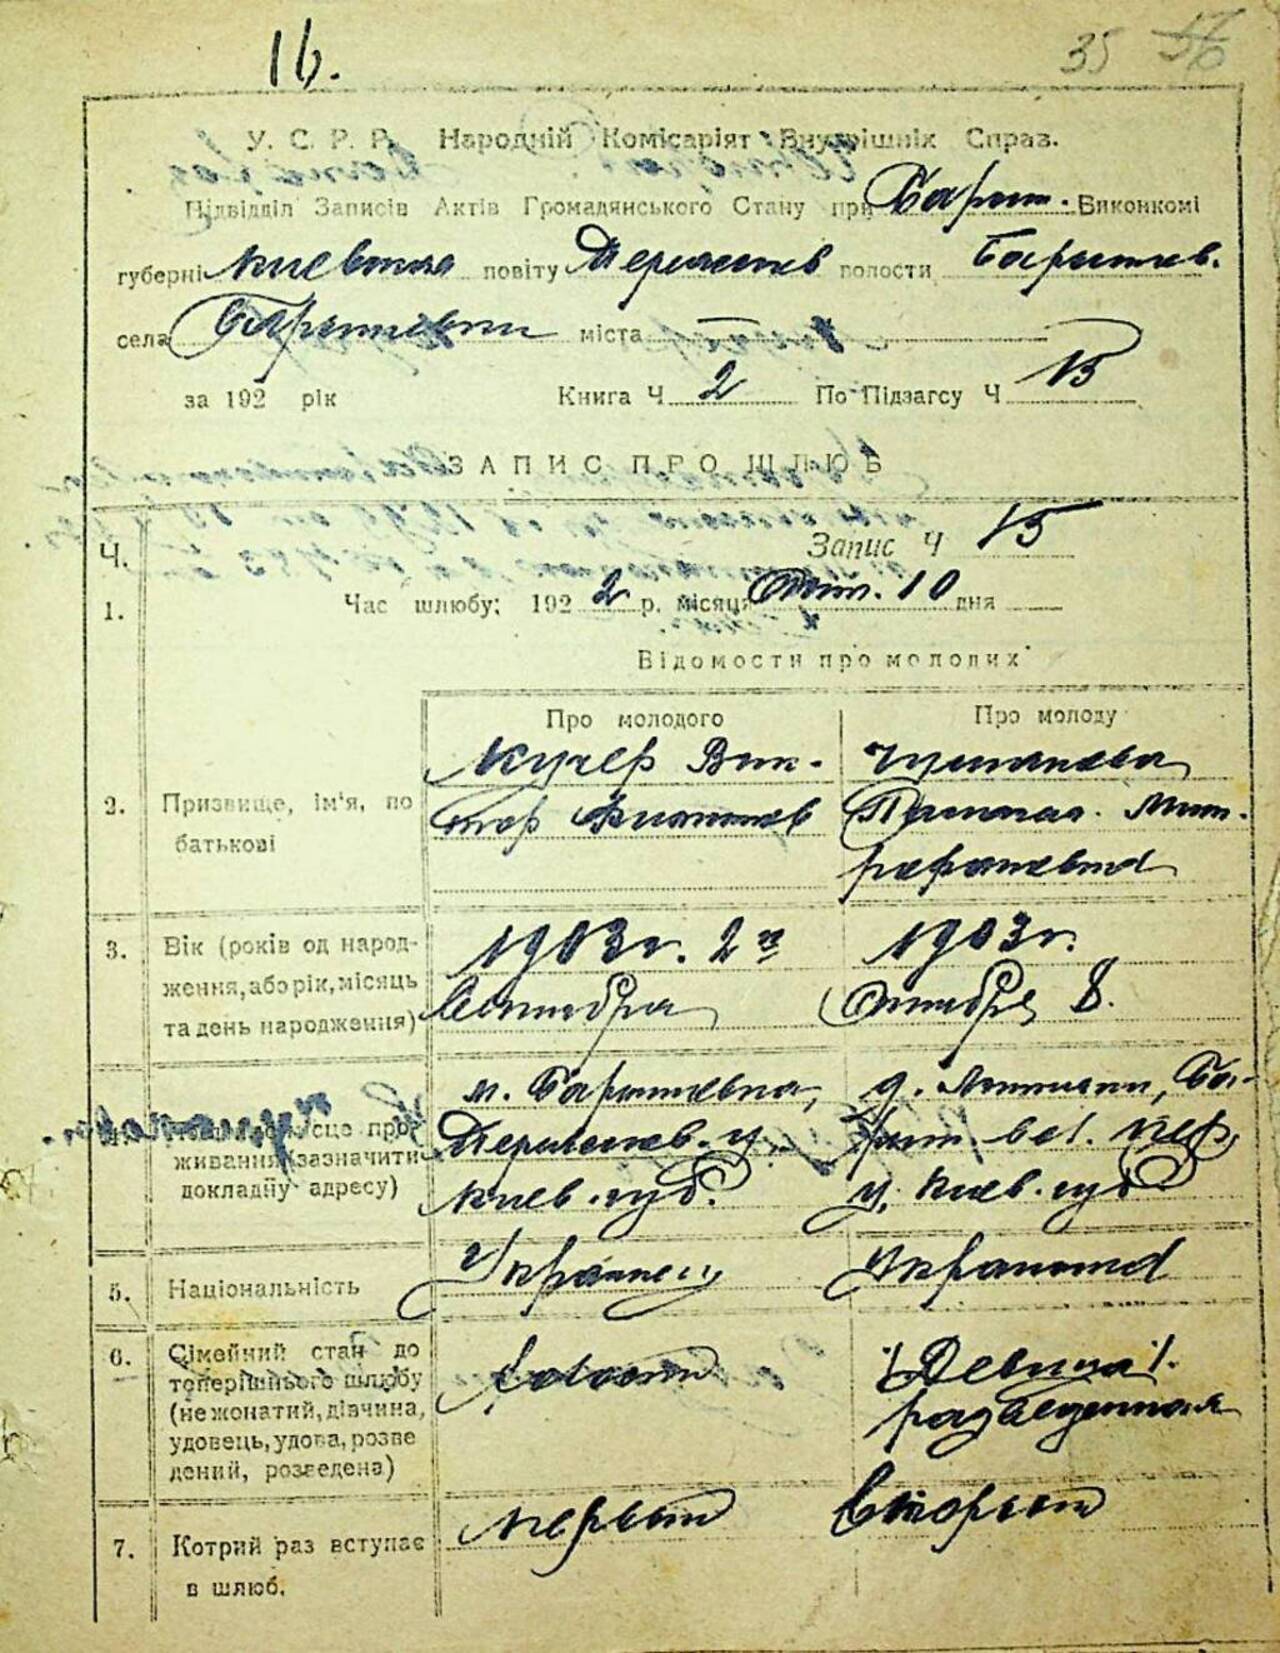 16.
35 56
У. С. Р. Р. Народній Комісаріят Внутрішніх Справ.
Підвідділ Записів Актів Громадянського Стану при Барыш. Виконкомі
губерні Киевской повіту Переяслав волости Барышев.
села Барышевки міста —
за 192 рік Книга Ч 2 По Підзагсу Ч 15
ЗАПИС ПРО ШЛЮБ
Ч. Запис Ч 15
1. Час шлюбу; 192 2 р. місяця Окт. 10 дня
Відомости про молодих
Про молодого Про молоду
Кучер Вик-
тор Филиппов
2. Призвище, ім'я, по батькові
Мит-
рофановна
3. Вік (років од народ-
ження, або рік, місяць
та день народження)
1903 г. 2го
Сентября
1903 г.
Октября 8.
сце про-
живання (зазначити
докладну адресу)
м. Барышевка,
Переяслав. у.
Киев. губ.
Ба-
рыш. вол. Пер.
у. Киев. губ
5. Національність Украинец Украинка
6. Сімейний стан до
теперішнього шлюбу
(не жонатий, дівчина,
удовець, удова, розве
дений, розведена)
холостой
/Девица/.
разведенная
7. Котрий раз вступає
в шлюб.
первый второй